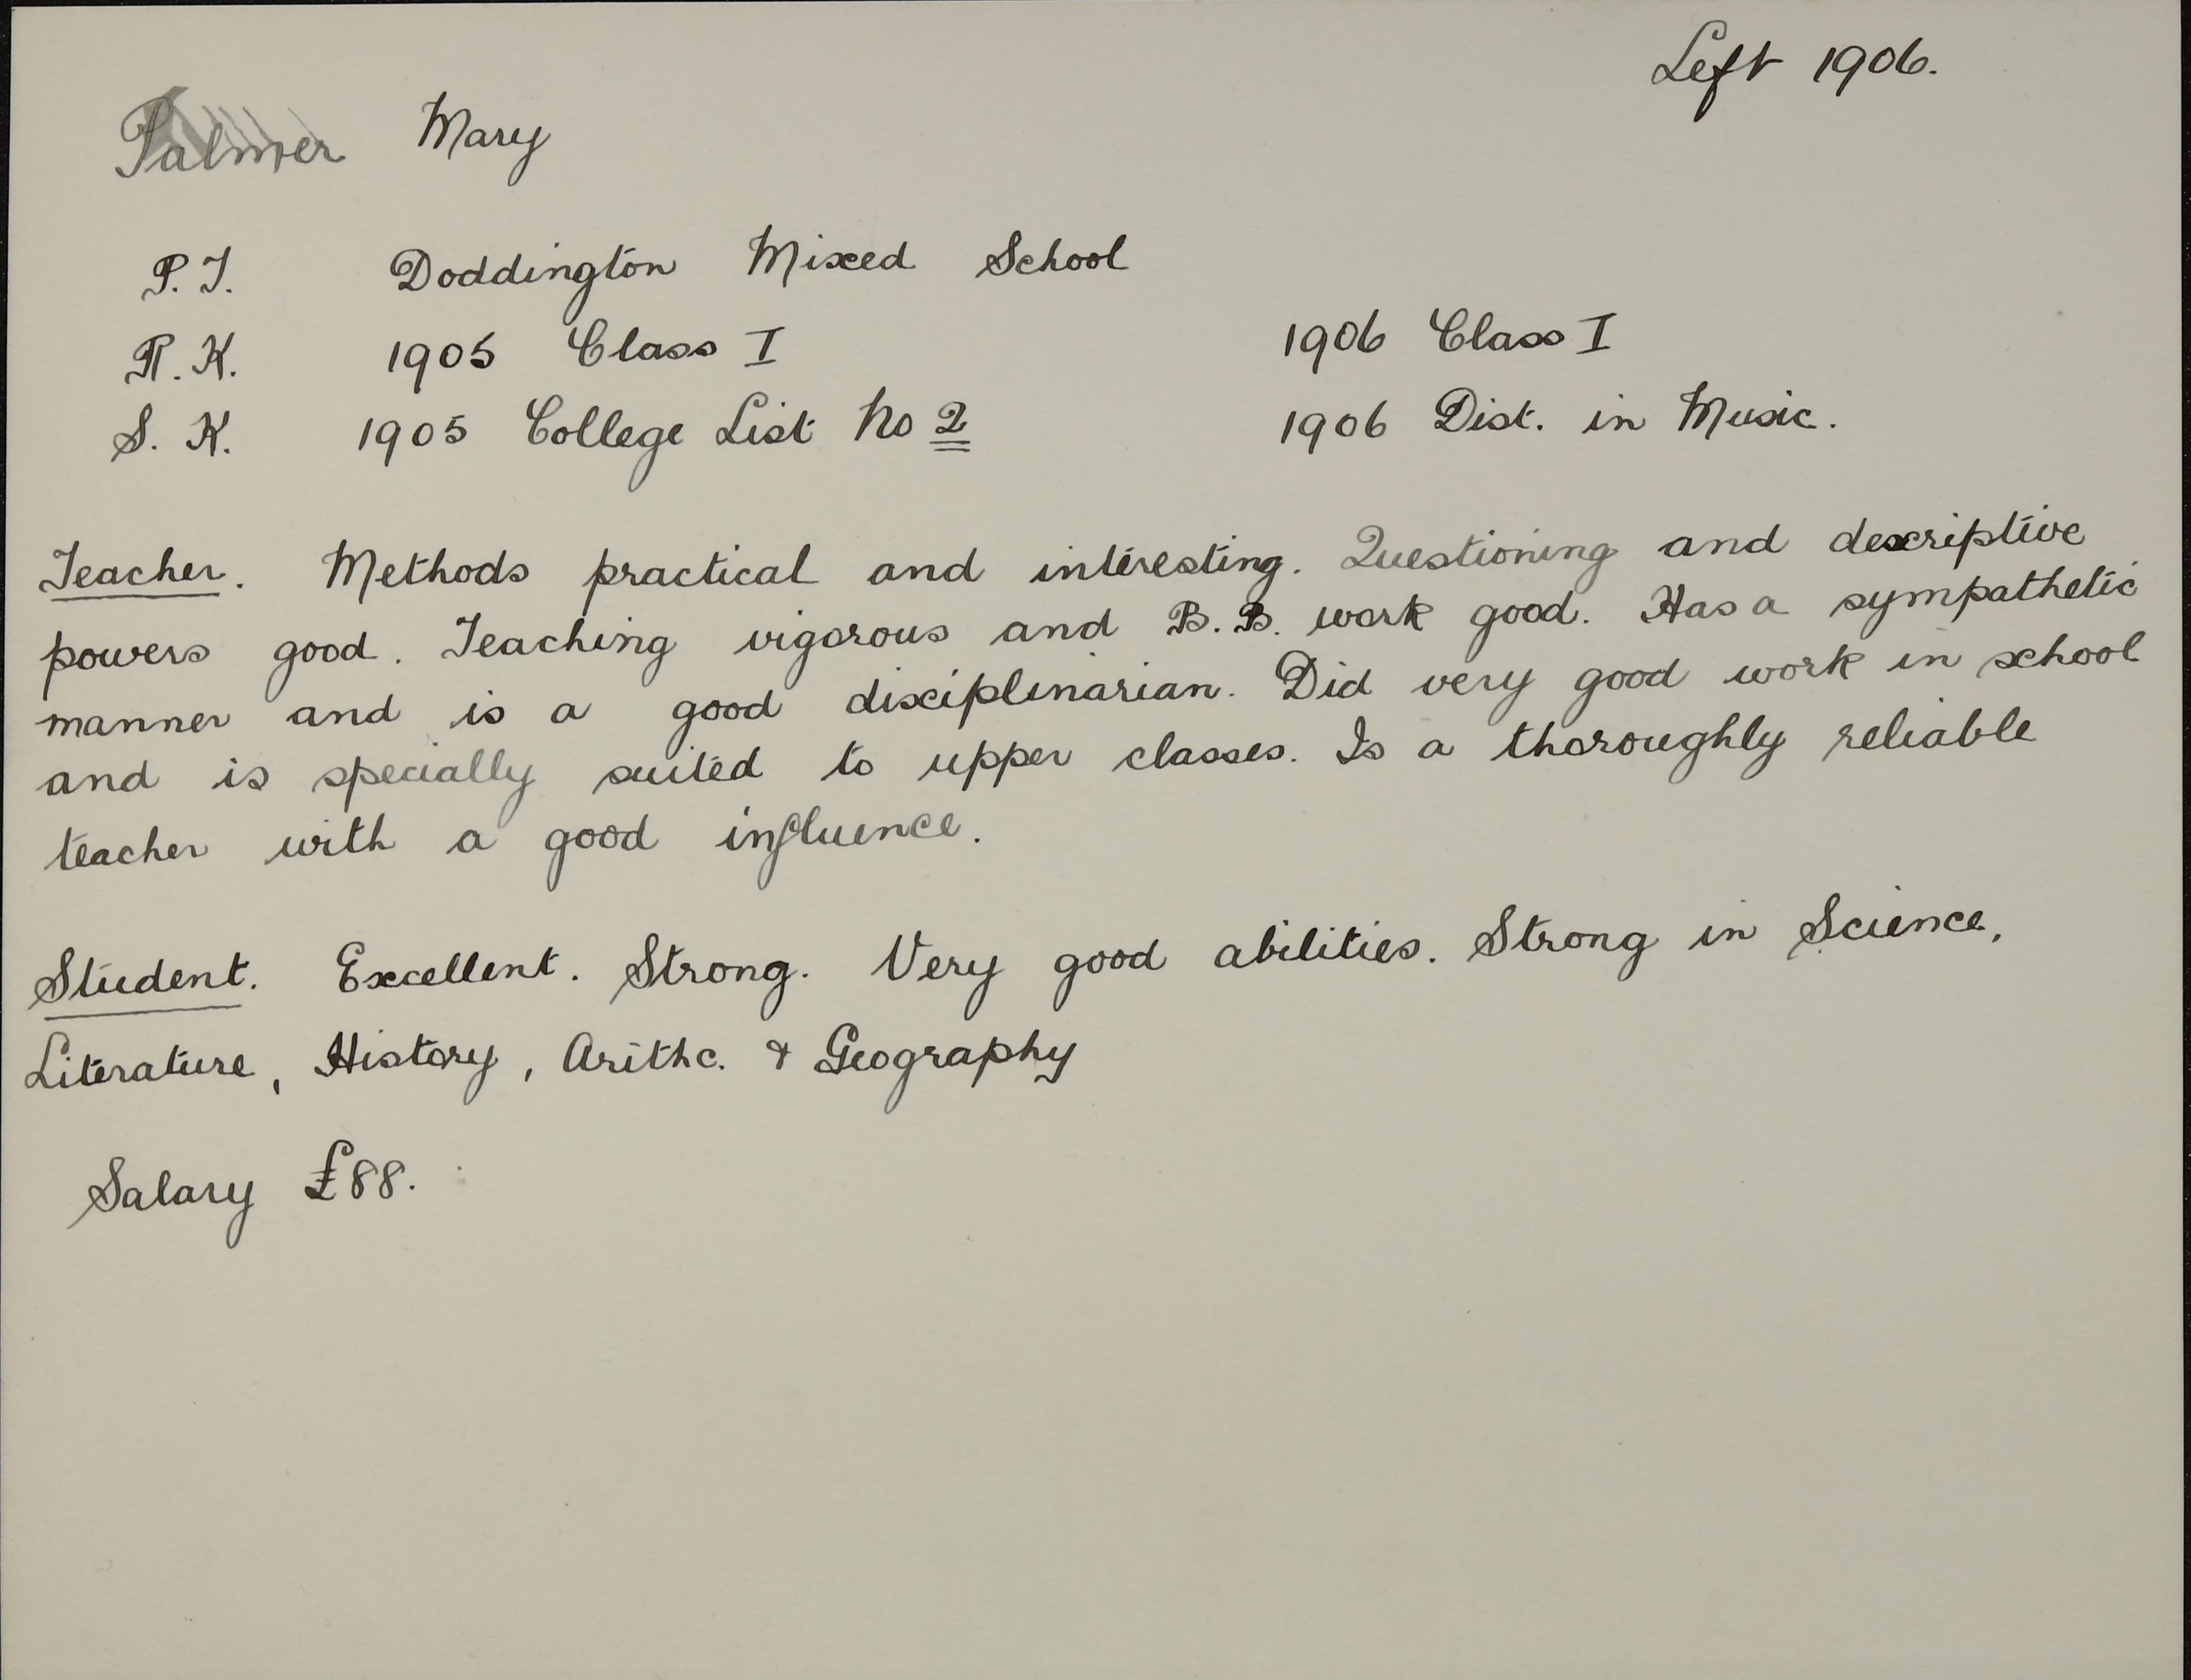 Left 1906.
Palmer Mary
P.T. Doddington Mixed School
R.K. 1905 Class I 1906 Class I
S.K. 1905 College List No 2 1906 Dist. in Music.
Teacher. Methods practical and interesting. Questioning and descriptive
powers good. Teaching vigorous and B.B. work good. Has a sympathetic
manner and is a good disciplinarian. Did very good work in school
and is specially suited to upper classes. Is a thoroughly reliable
teacher with a good influence.
Student. Excellent. Strong. Very good abilities. Strong in Science,
Literature, History, Arithc. & Geography
Salary £88.